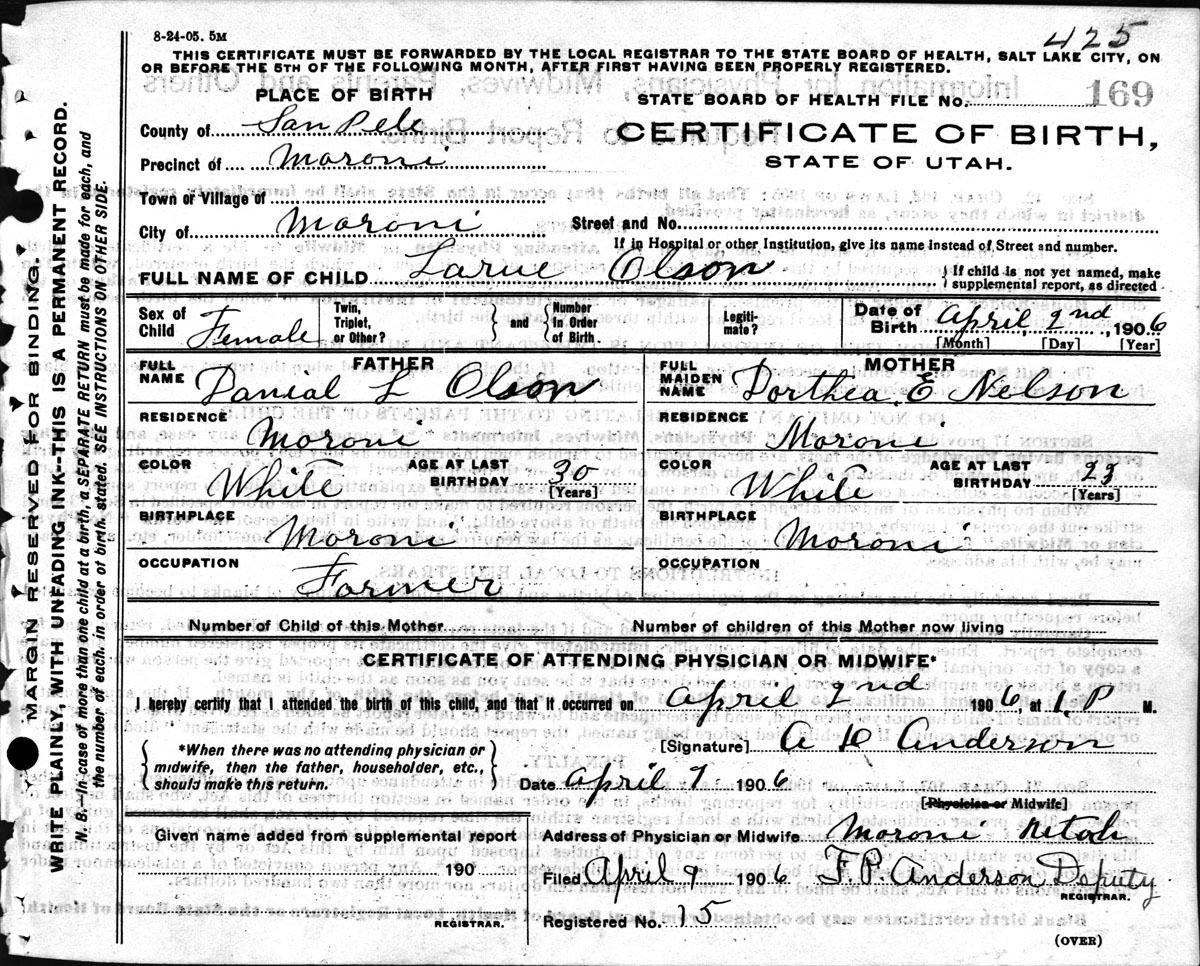 8-24-05. 5M
425
THIS CERTIFICATE MUST BE FORWARDED BY THE LOCAL REGISTRAR TO THE STATE BOARD OF HEALTH, SALT LAKE CITY, ON
OR BEFORE THE 5TH OF THE FOLLOWING MONTH, AFTER FIRST HAVING BEEN PROPERLY REGISTERED.
PLACE OF BIRTH
STATE BOARD OF HEALTH FILE No. 169
County of San Pete
CERTIFICATE OF BIRTH,
Precinct of Moroni
STATE OF UTAH.
Town or Village of
City of Moroni Street and No.
If in Hospital or other Institution, give its name instead of Street and number.
FULL NAME OF CHILD Larue Olson { If child is not yet named, make supplemental report, as directed
Sex of Child Female Twin, Triplet, or Other? { } and { Number in Order of Birth. Legiti-mate? Date of Birth April 2nd, 1906
[Month] [Day] [Year]
FATHER
MOTHER
FULL NAME Danial L Olson
FULL MAIDEN NAME Dorthea E Nelson
RESIDENCE Moroni
RESIDENCE Moroni
COLOR White AGE AT LAST BIRTHDAY 30 [Years]
COLOR White AGE AT LAST BIRTHDAY 23 [Years]
BIRTHPLACE Moroni
BIRTHPLACE Moroni
OCCUPATION Farmer
OCCUPATION
Number of Child of this Mother
Number of children of this Mother now living
CERTIFICATE OF ATTENDING PHYSICIAN OR MIDWIFE*
I hereby certify that I attended the birth of this child, and that it occurred on April 2nd 1906, at 1 P M.
{ *When there was no attending physician or midwife, then the father, householder, etc., should make this return. }
[Signature] A Anderson
Date April 7 1906
[Physician or Midwife]
Given name added from supplemental report
190
REGISTRAR.
Address of Physician or Midwife Moroni Utah
Filed April 9 1906 F. P. Anderson Deputy
REGISTRAR.
Registered No. 15
(OVER)
MARGIN RESERVED FOR BINDING.
WRITE PLAINLY, WITH UNFADING INK--THIS IS A PERMANENT RECORD.
N. B.--In case of more than one child at a birth, a SEPARATE RETURN must be made for each, and
the number of each, in order of birth, stated. SEE INSTRUCTIONS ON OTHER SIDE.